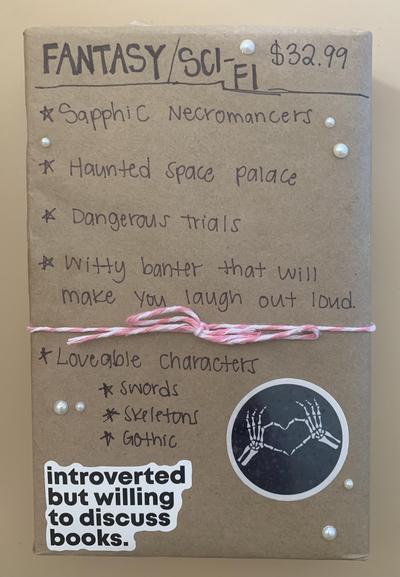 FANTASY/SCI-FI $32.99
* Sapphic Necromancers
* Haunted space palace
* Dangerous trials
* Witty banter that will
make you laugh out loud.
* Loveable characters
* Swords
* Skeletons
* Gothic
introverted
but willing
to discuss
books.